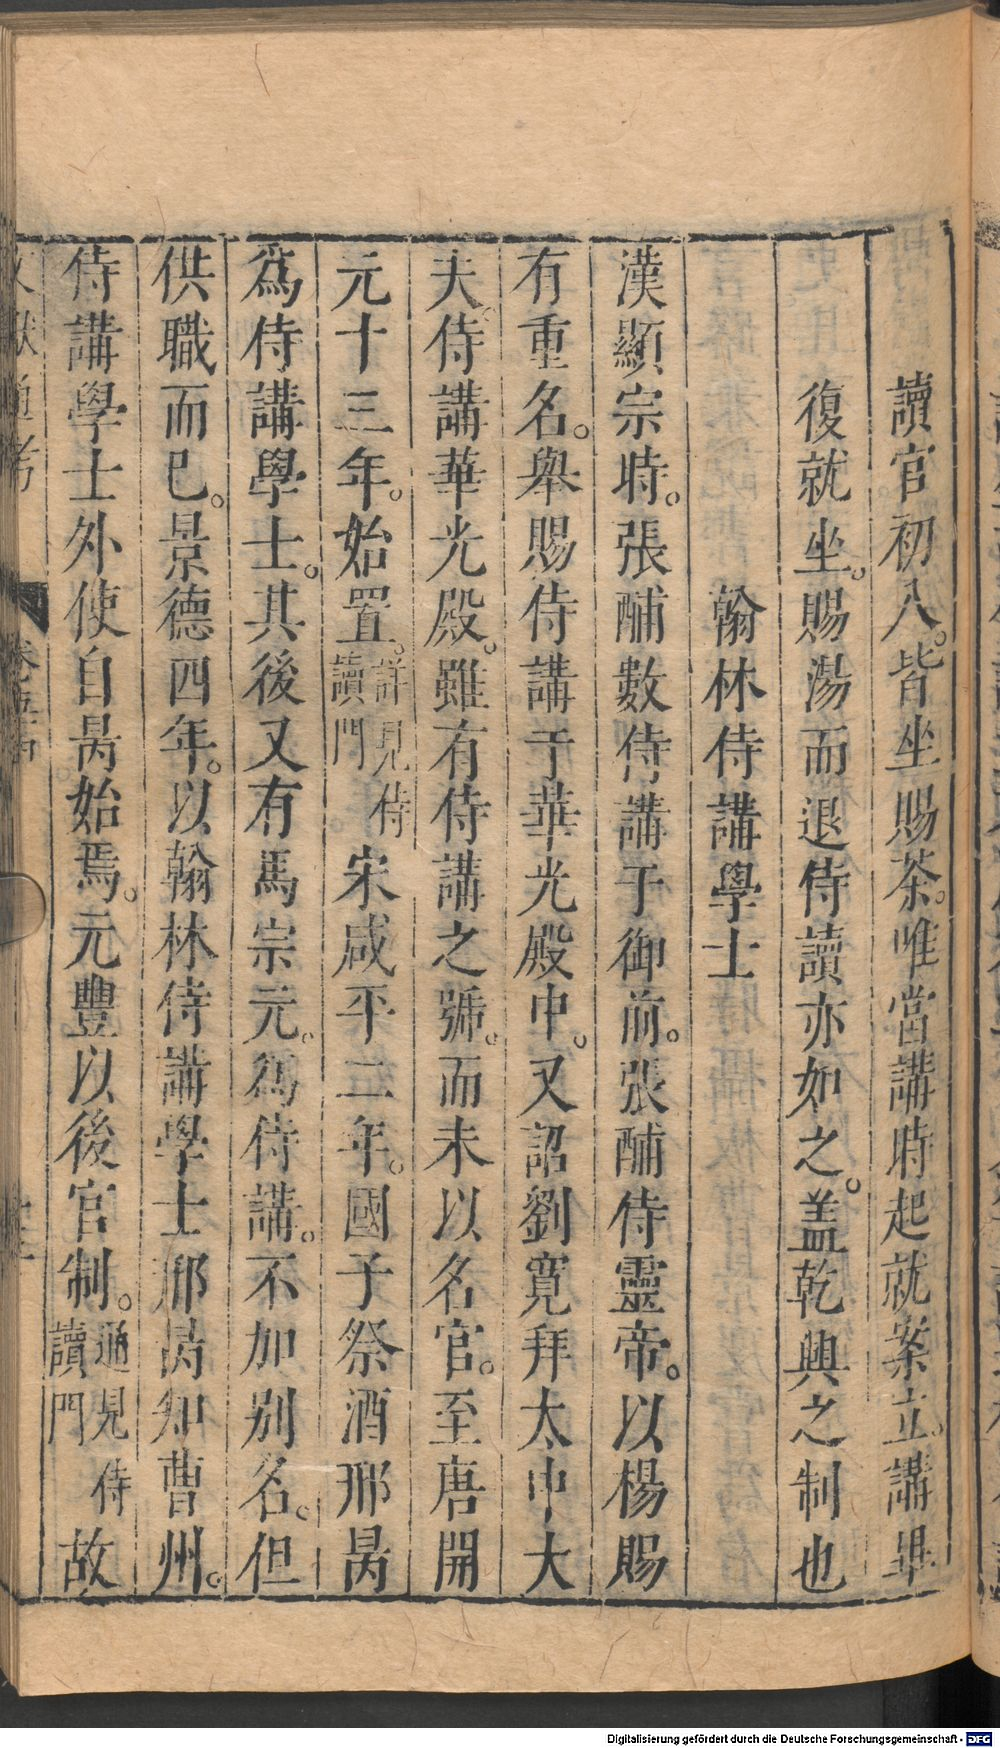 讀官初入。皆坐賜茶。唯當講時起就案立。講畢
復就坐。賜湯而退侍讀亦如之。盖乾興之制也
翰林侍講學士
漢顯宗時。張酺數侍講于御前。張酺侍靈帝。以楊賜
有重名。舉賜侍講于華光殿中。又詔劉寬拜太中大
夫。侍講華光殿。雖有侍講之號。而未以名官。至唐開
元十三年。始置。詳見侍讀門。宋咸平二年。國子祭酒邢昺
爲侍講學士。其後又有馬宗元。爲侍講。不加別名。但
供職而已。景德四年。以翰林侍講學士邢昺知曹州。
侍講學士外使自昺始焉。元豐以後官制。通見侍讀門故
文獻通考
Digitalisierung gefördert durch die Deutsche Forschungsgemeinschaft - DFG